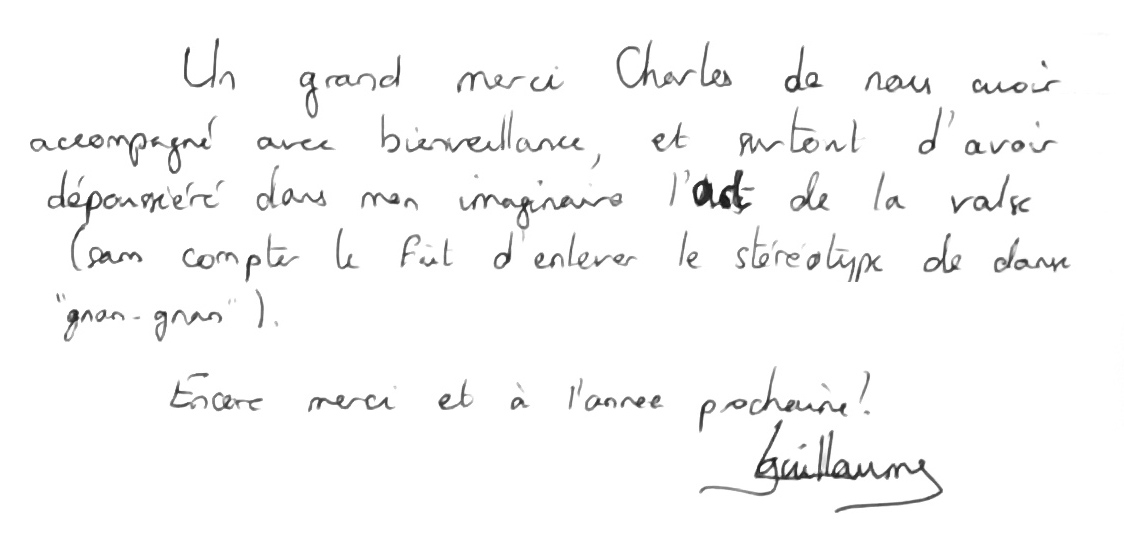 Un grand merci Charles de nous avoir
accompagné avec bienveillance, et surtout d'avoir
dépoussiéré dans mon imaginaire l'art de la valse
(sans compter le fait d'enlever le stéréotype de danse
"gnan-gnan").
Encore merci et à l'année prochaine!
Guillaume